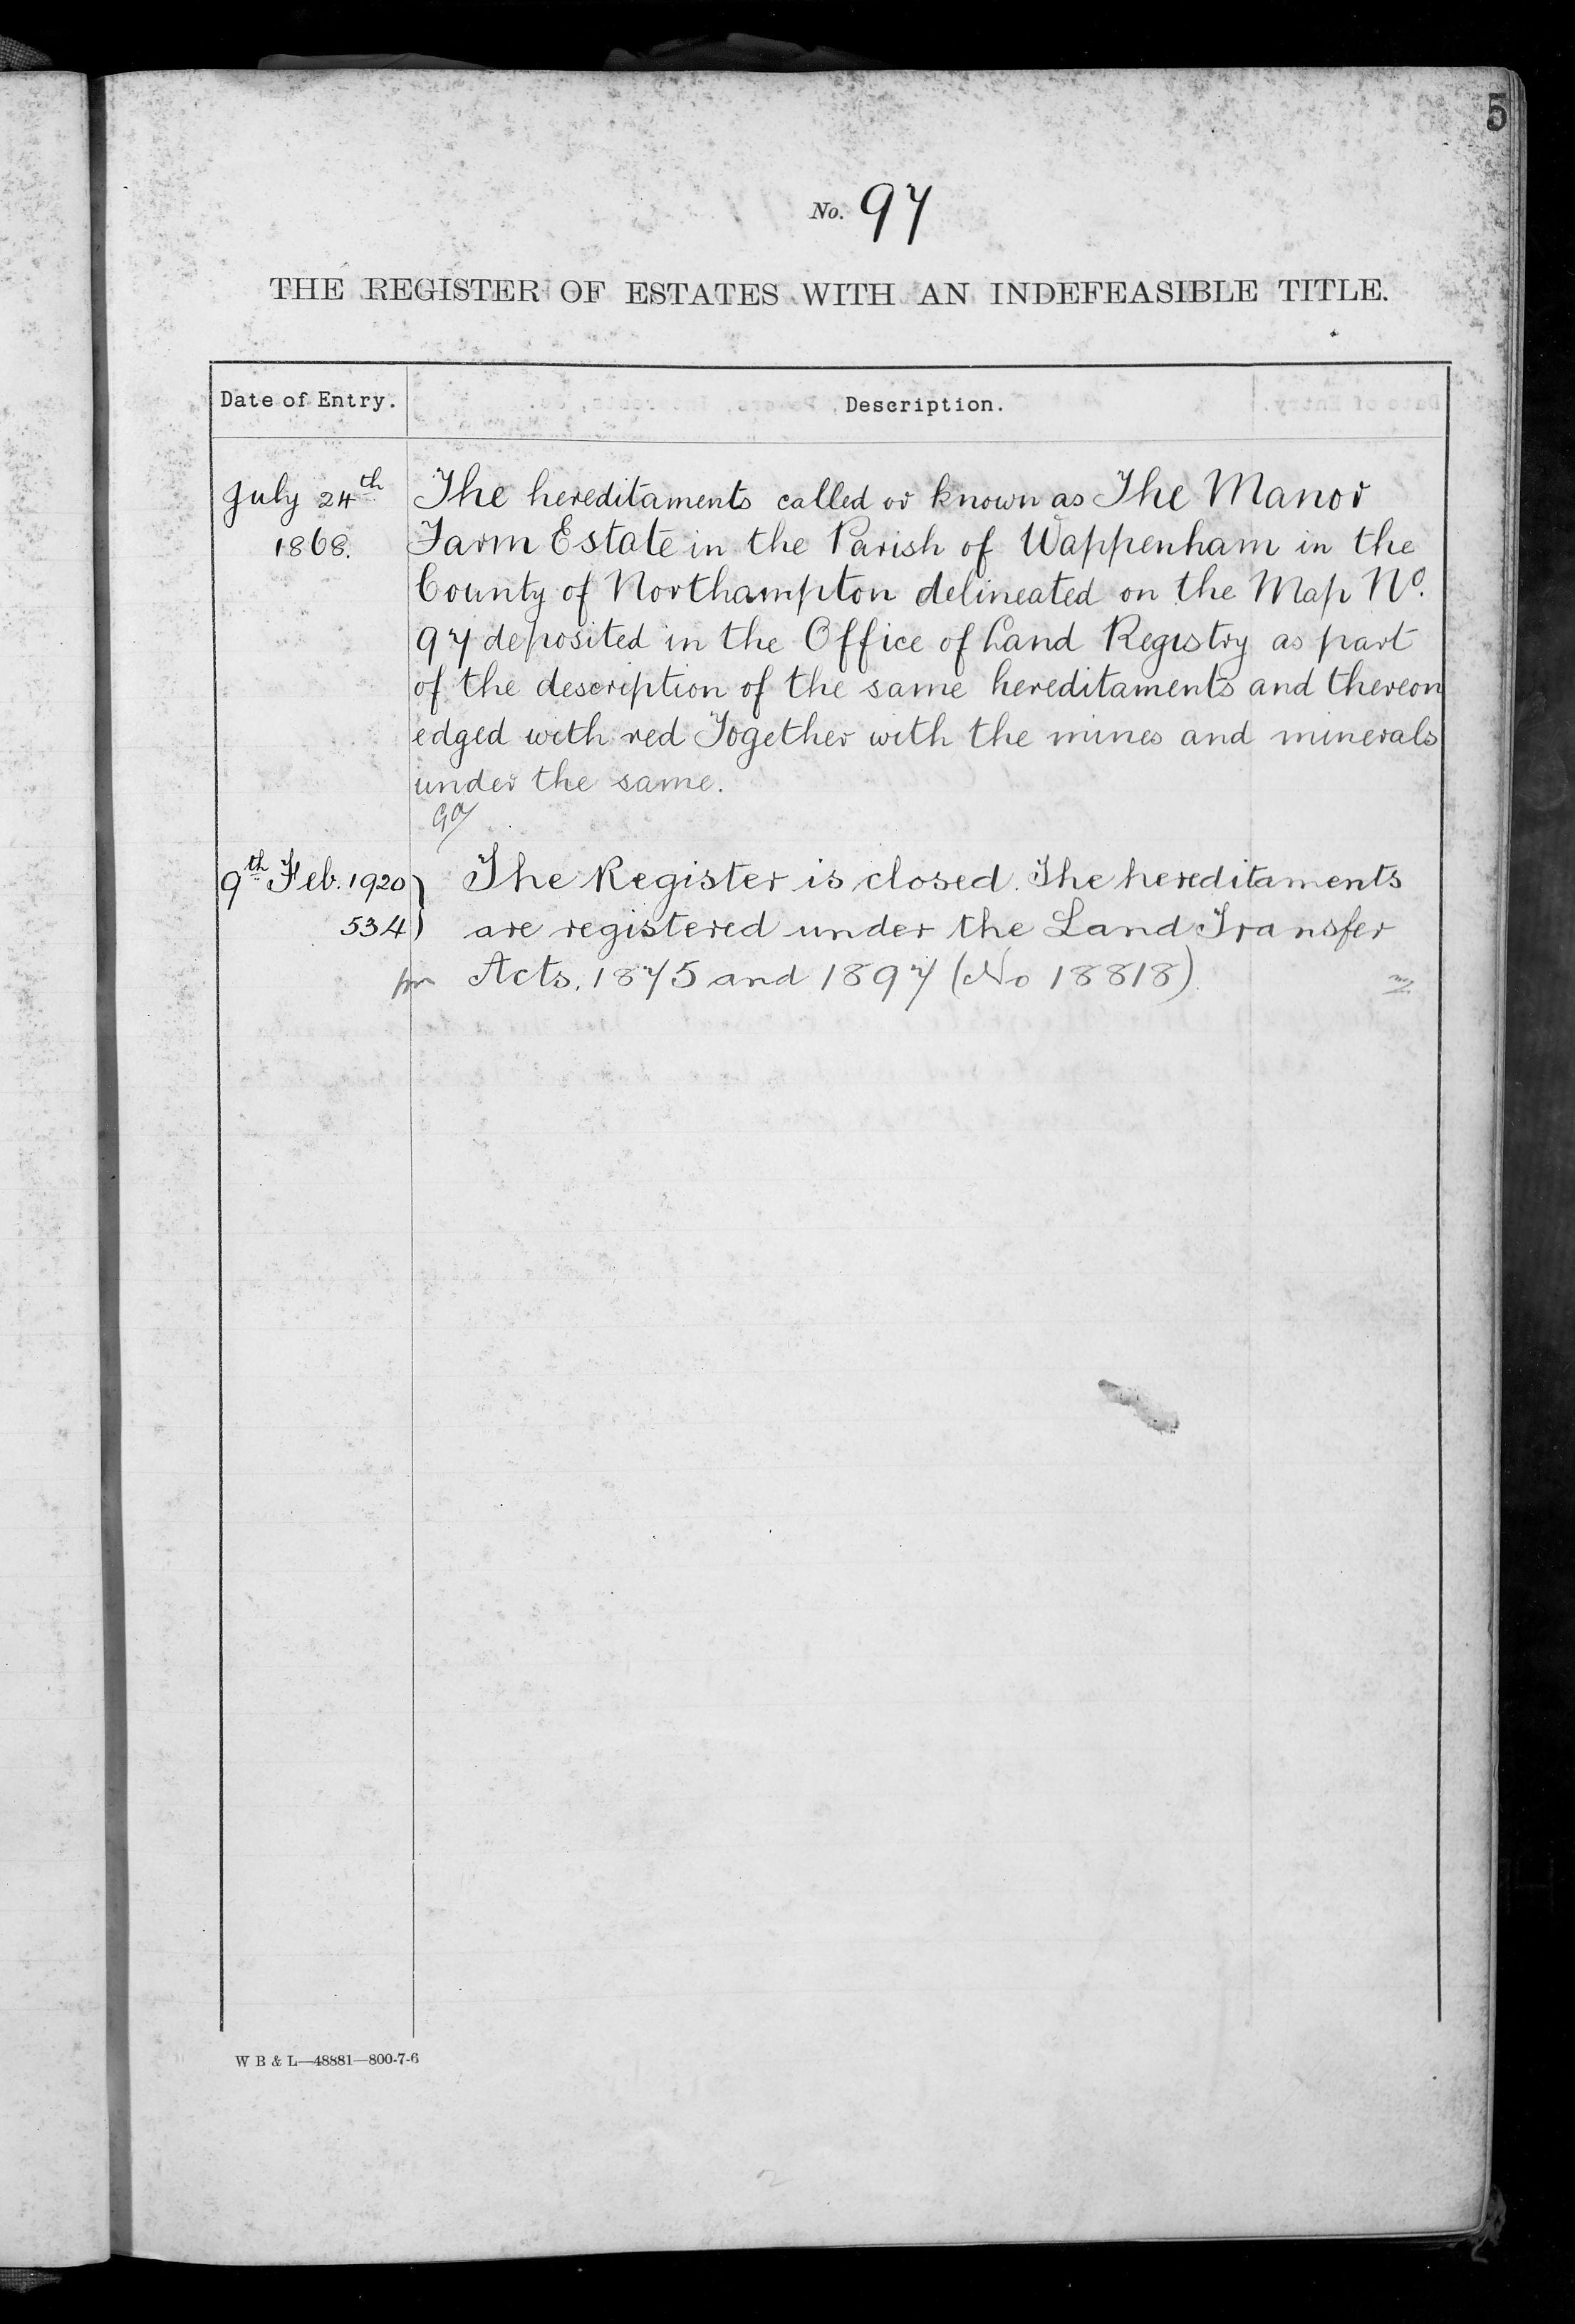 5
No. 97
THE REGISTER OF ESTATES WITH AN INDEFEASIBLE TITLE.
Date of Entry. Description.
July 24th The hereditaments called or known as The Manor
1868. Farm Estate in the Parish of Wappenham in the
County of Northampton delineated on the Map No.
97 deposited in the Office of Land Registry as part
of the description of the same hereditaments and thereon
edged with red Together with the mines and minerals
under the same.
9th Feb. 1920 The Register is closed. The hereditaments
534 are registered under the Land Transfer
Acts, 1875 and 1897 (No 18818).
W B & L—48881—800-7-6
2